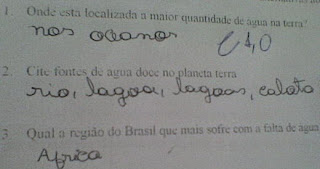 1. Onde esta localizada a maior quantidade de água na terra?
nos oceanos
C 1,0
2. Cite fontes de agua doce no planeta terra
rio, lagoa, lagoas,
3. Qual a região do Brasil que mais sofre com a falta de água
Africa